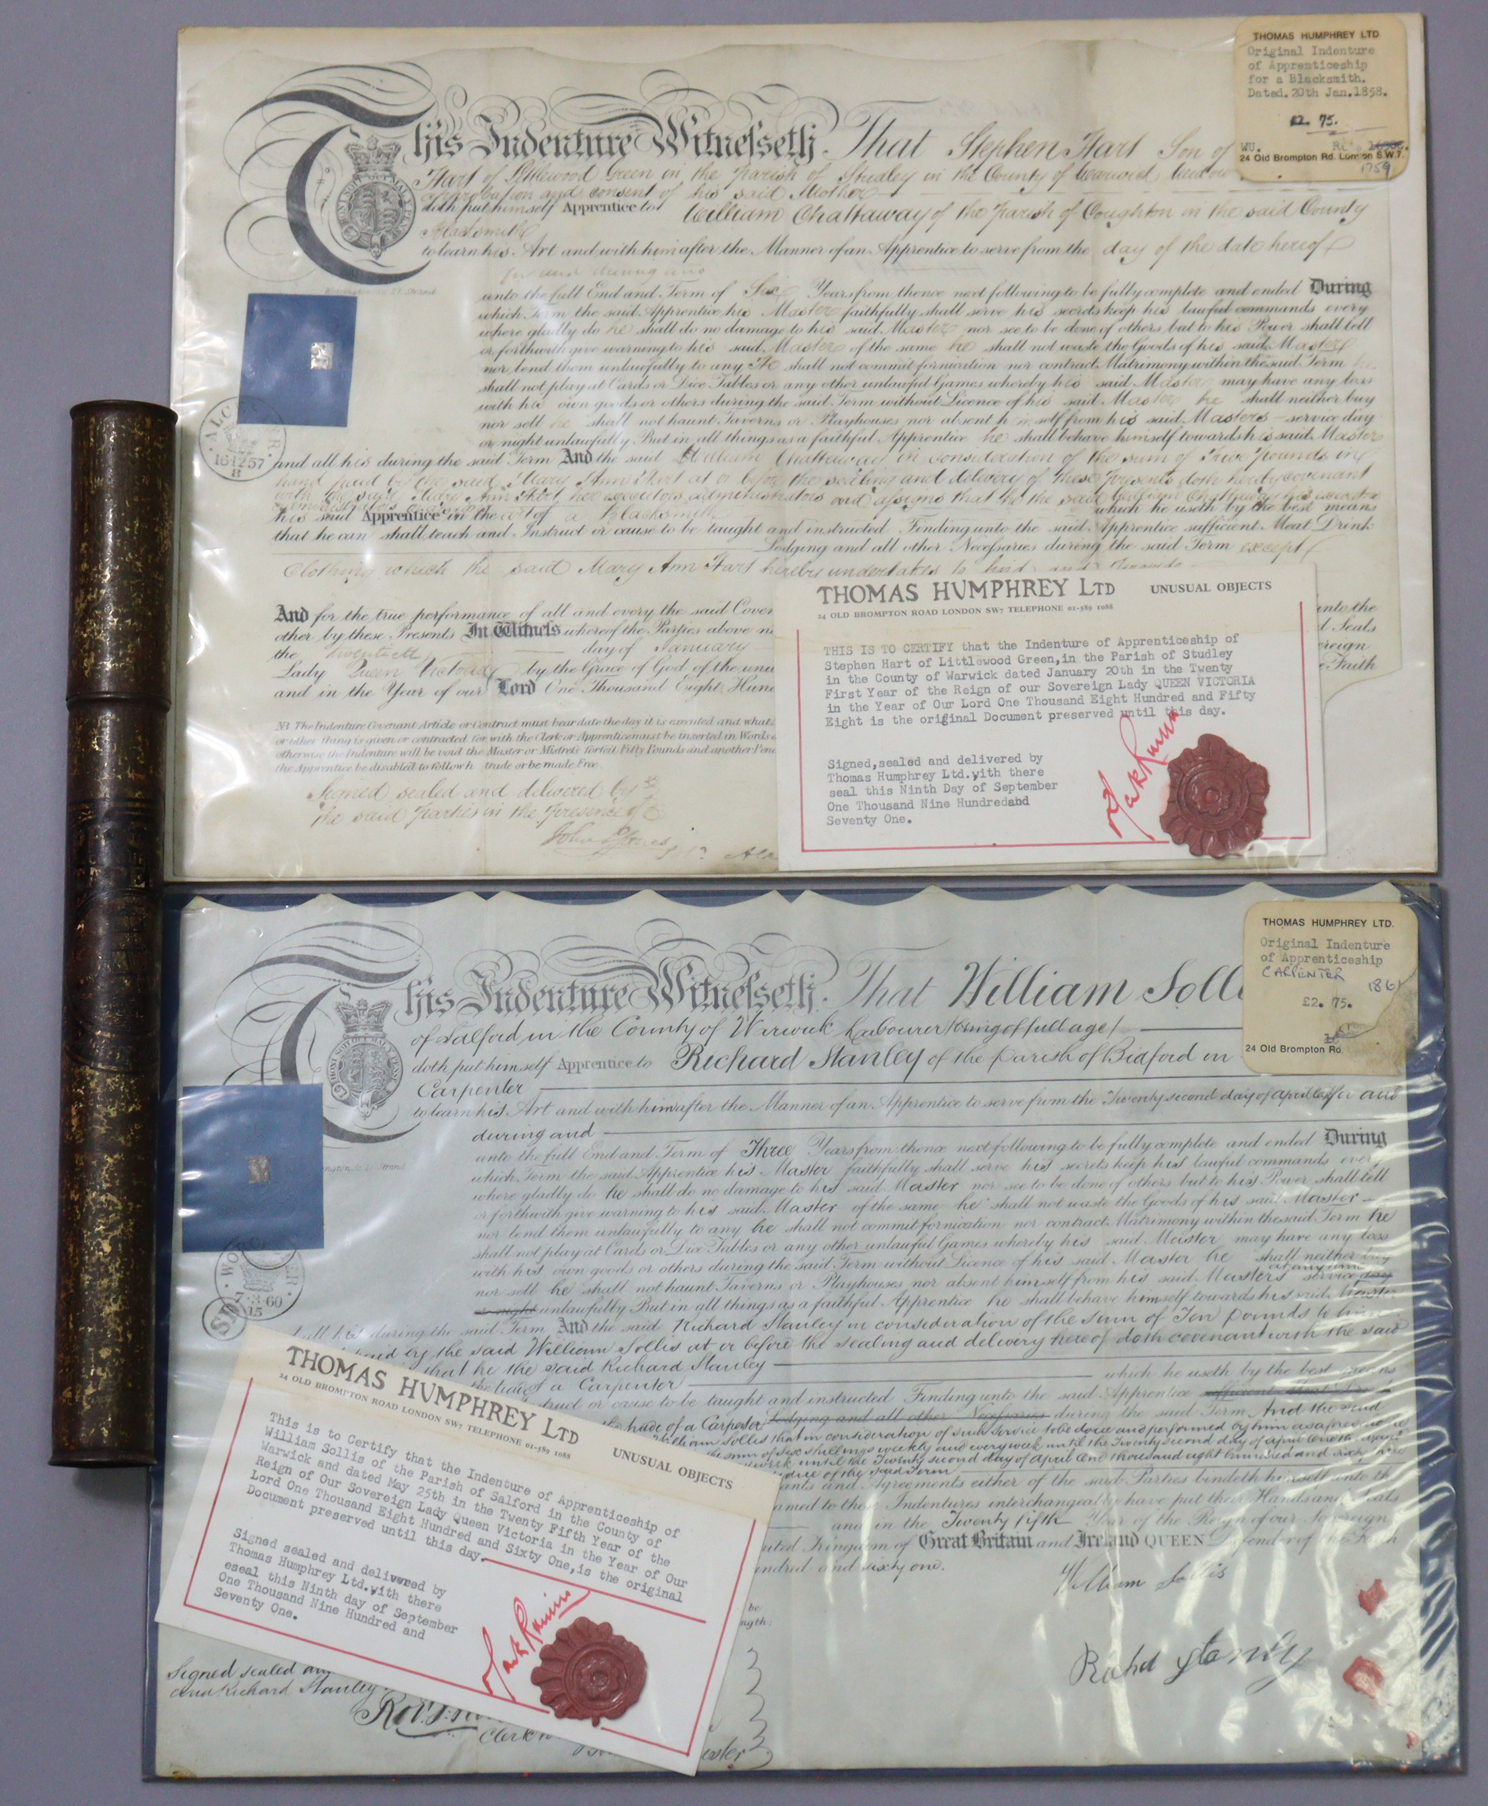 This Indenture Witnesseth That Stephen Hart Son of
Hart of Littlewood Green in the Parish of Studley in the County of Warwick
approbation and consent of his said Mother
doth put himself Apprentice to William Chattaway of the Parish of Coughton in the said County
Blacksmith
to learn his Art and with him after the Manner of an Apprentice to serve from the day of the date hereof
for and during and
unto the full End and Term of Six Years from thence next following to be fully complete and ended During
which Term the said Apprentice his Master faithfully shall serve his secrets keep his lawful commands every
where gladly do he shall do no damage to his said Master nor see to be done of others but to his Power shall tell
or forthwith give warning to his said Master of the same he shall not waste the Goods of his said Master
nor lend them unlawfully to any He shall not commit fornication nor contract Matrimony within the said Term he
shall not play at Cards or Dice Tables or any other unlawful Games whereby his said Master may have any loss
with his own goods or others during the said Term without Licence of his said Master he shall neither buy
nor sell he shall not haunt Taverns or Playhouses nor absent himself from his said Masters service day
or night unlawfully But in all things as a faithful Apprentice he shall behave himself towards his said Master
and all his during the said Term And the said William Chattaway in consideration of the sum of Five Pounds in
hand paid by the said Mary Ann Hart at or before the sealing and delivery of these Presents doth hereby covenant
with the said Mary Ann Hart, her executors administrators and assigns that he the said William Chattaway his executors
which he useth by the best means
his said Apprentice in the art of a Blacksmith
that he can shall teach and Instruct or cause to be taught and instructed Finding unto the said Apprentice sufficient Meat Drink
Lodging and all other Necessaries during the said Term except
Clothing which the said Mary Ann Hart hereby undertakes to find and
And for the true performance of all and every the said Coven
unto the
other by these Presents In Witness whereof the Parties above n
d Seals
the twentieth day of January
ereign
Lady Queen Victoria by the Grace of God of the Unit
e Faith
and in the Year of our Lord One Thousand Eight Hund
NB The Indenture Covenant Article or Contract must bear date the day it is executed and what
or other thing is given or contracted for with the Clerk or Apprentice must be inserted in Words a
otherwise the Indenture will be void the Master or Mistress forfeit Fifty Pounds and another Pen
the Apprentice be disabled to follow h trade or be made Free.
Signed sealed and delivered by
the said Parties in the Presence of
John Jones
ALC
16·12·57
THOMAS HUMPHREY LTD.
Original Indenture
of Apprenticeship
for a Blacksmith.
Dated. 20th Jan.1858.
£2. 75.
WU.
24 Old Brompton Rd. London S.W.7.
1759
THOMAS HUMPHREY LTD UNUSUAL OBJECTS
24 OLD BROMPTON ROAD LONDON SW7 TELEPHONE 01-589 1088
THIS IS TO CERTIFY that the Indenture of Apprenticeship of
Stephen Hart of Littlewood Green,in the Parish of Studley
in the County of Warwick dated January 20th in the Twenty
First Year of the Reign of our Sovereign Lady QUEEN VICTORIA
in the Year of Our Lord One Thousand Eight Hundred and Fifty
Eight is the original Document preserved until this day.
Signed,sealed and delivered by
Thomas Humphrey Ltd.with there
seal this Ninth Day of September
One Thousand Nine Hundredand
Seventy One.
This Indenture Witnesseth That William Solli
of Salford in the County of Warwick Labourer (being of full age)
doth put himself Apprentice to Richard Stanley of the Parish of Bidford in
Carpenter
to learn his Art and with him after the Manner of an Apprentice to serve from the Twenty second day of April last for and
during and
unto the full End and Term of Three Years from thence next following to be fully complete and ended During
which Term the said Apprentice his Master faithfully shall serve his secrets keep his lawful commands every
where gladly do he shall do no damage to his said Master nor see to be done of others but to his Power shall tell
or forthwith give warning to his said Master of the same he shall not waste the Goods of his said Master
nor lend them unlawfully to any he shall not commit fornication nor contract Matrimony within the said Term he
shall not play at Cards or Dice Tables or any other unlawful Games whereby his said Master may have any loss
with his own goods or others during the said Term without Licence of his said Master he shall neither buy
nor sell he shall not haunt Taverns or Playhouses nor absent himself from his said Masters at any time service day
or night unlawfully But in all things as a faithful Apprentice he shall behave himself towards his said Master
all his during the said Term And the said Richard Stanley in consideration of the sum of Ten Pounds to him
paid by the said William Sollis at or before the sealing and delivery hereof doth covenant with the said
that he the said Richard Stanley which he useth by the best means
the trade of a Carpenter
struct or cause to be taught and instructed Finding unto the said Apprentice sufficient Meat Drink
the trade of a Carpenter Lodging and all other Necessaries during the said Term And the said
William Sollis that in consideration of such service to be done and performed by him as aforesaid he
the sum of six shillings weekly and every week until the Twenty second day of April One thous
week until the Twenty second day of April One thousand eight hundred and sixty
due of the said Term
ants and Agreements either of the said Parties bindeth himself unto the
amed to these Indentures interchangeably have put their Hands and Seals
and in the Twenty fifth Year of the Reign of our Sovereign
ited Kingdom of Great Britain and Ireland QUEEN Defender of the Faith
undred and sixty one.
William Sollis
Richd Stanley
be
ngth:
Signed sealed an
and Richard Stanley
Clerk
7·3·60
THOMAS HUMPHREY LTD.
Original Indenture
of Apprenticeship
CARPENTER
1861
£2. 75.
24 Old Brompton Rd.
THOMAS HUMPHREY LTD UNUSUAL OBJECTS
24 OLD BROMPTON ROAD LONDON SW7 TELEPHONE 01-589 1088
This is to Certify that the Indenture of Apprenticeship of
William Sollis of the Parish of Salford in the County of
Warwick and dated May 25th in the Twenty Fifth Year of the
Reign of Our Sovereign Lady Queen Victoria in the Year of Our
Lord One Thousand Eight Hundred and Sixty One,is the original
Document preserved until this day.
Signed sealed and delivered by
Thomas Humphrey Ltd.with there
eseal this Ninth day of September
One Thousand Nine Hundred and
Seventy One.